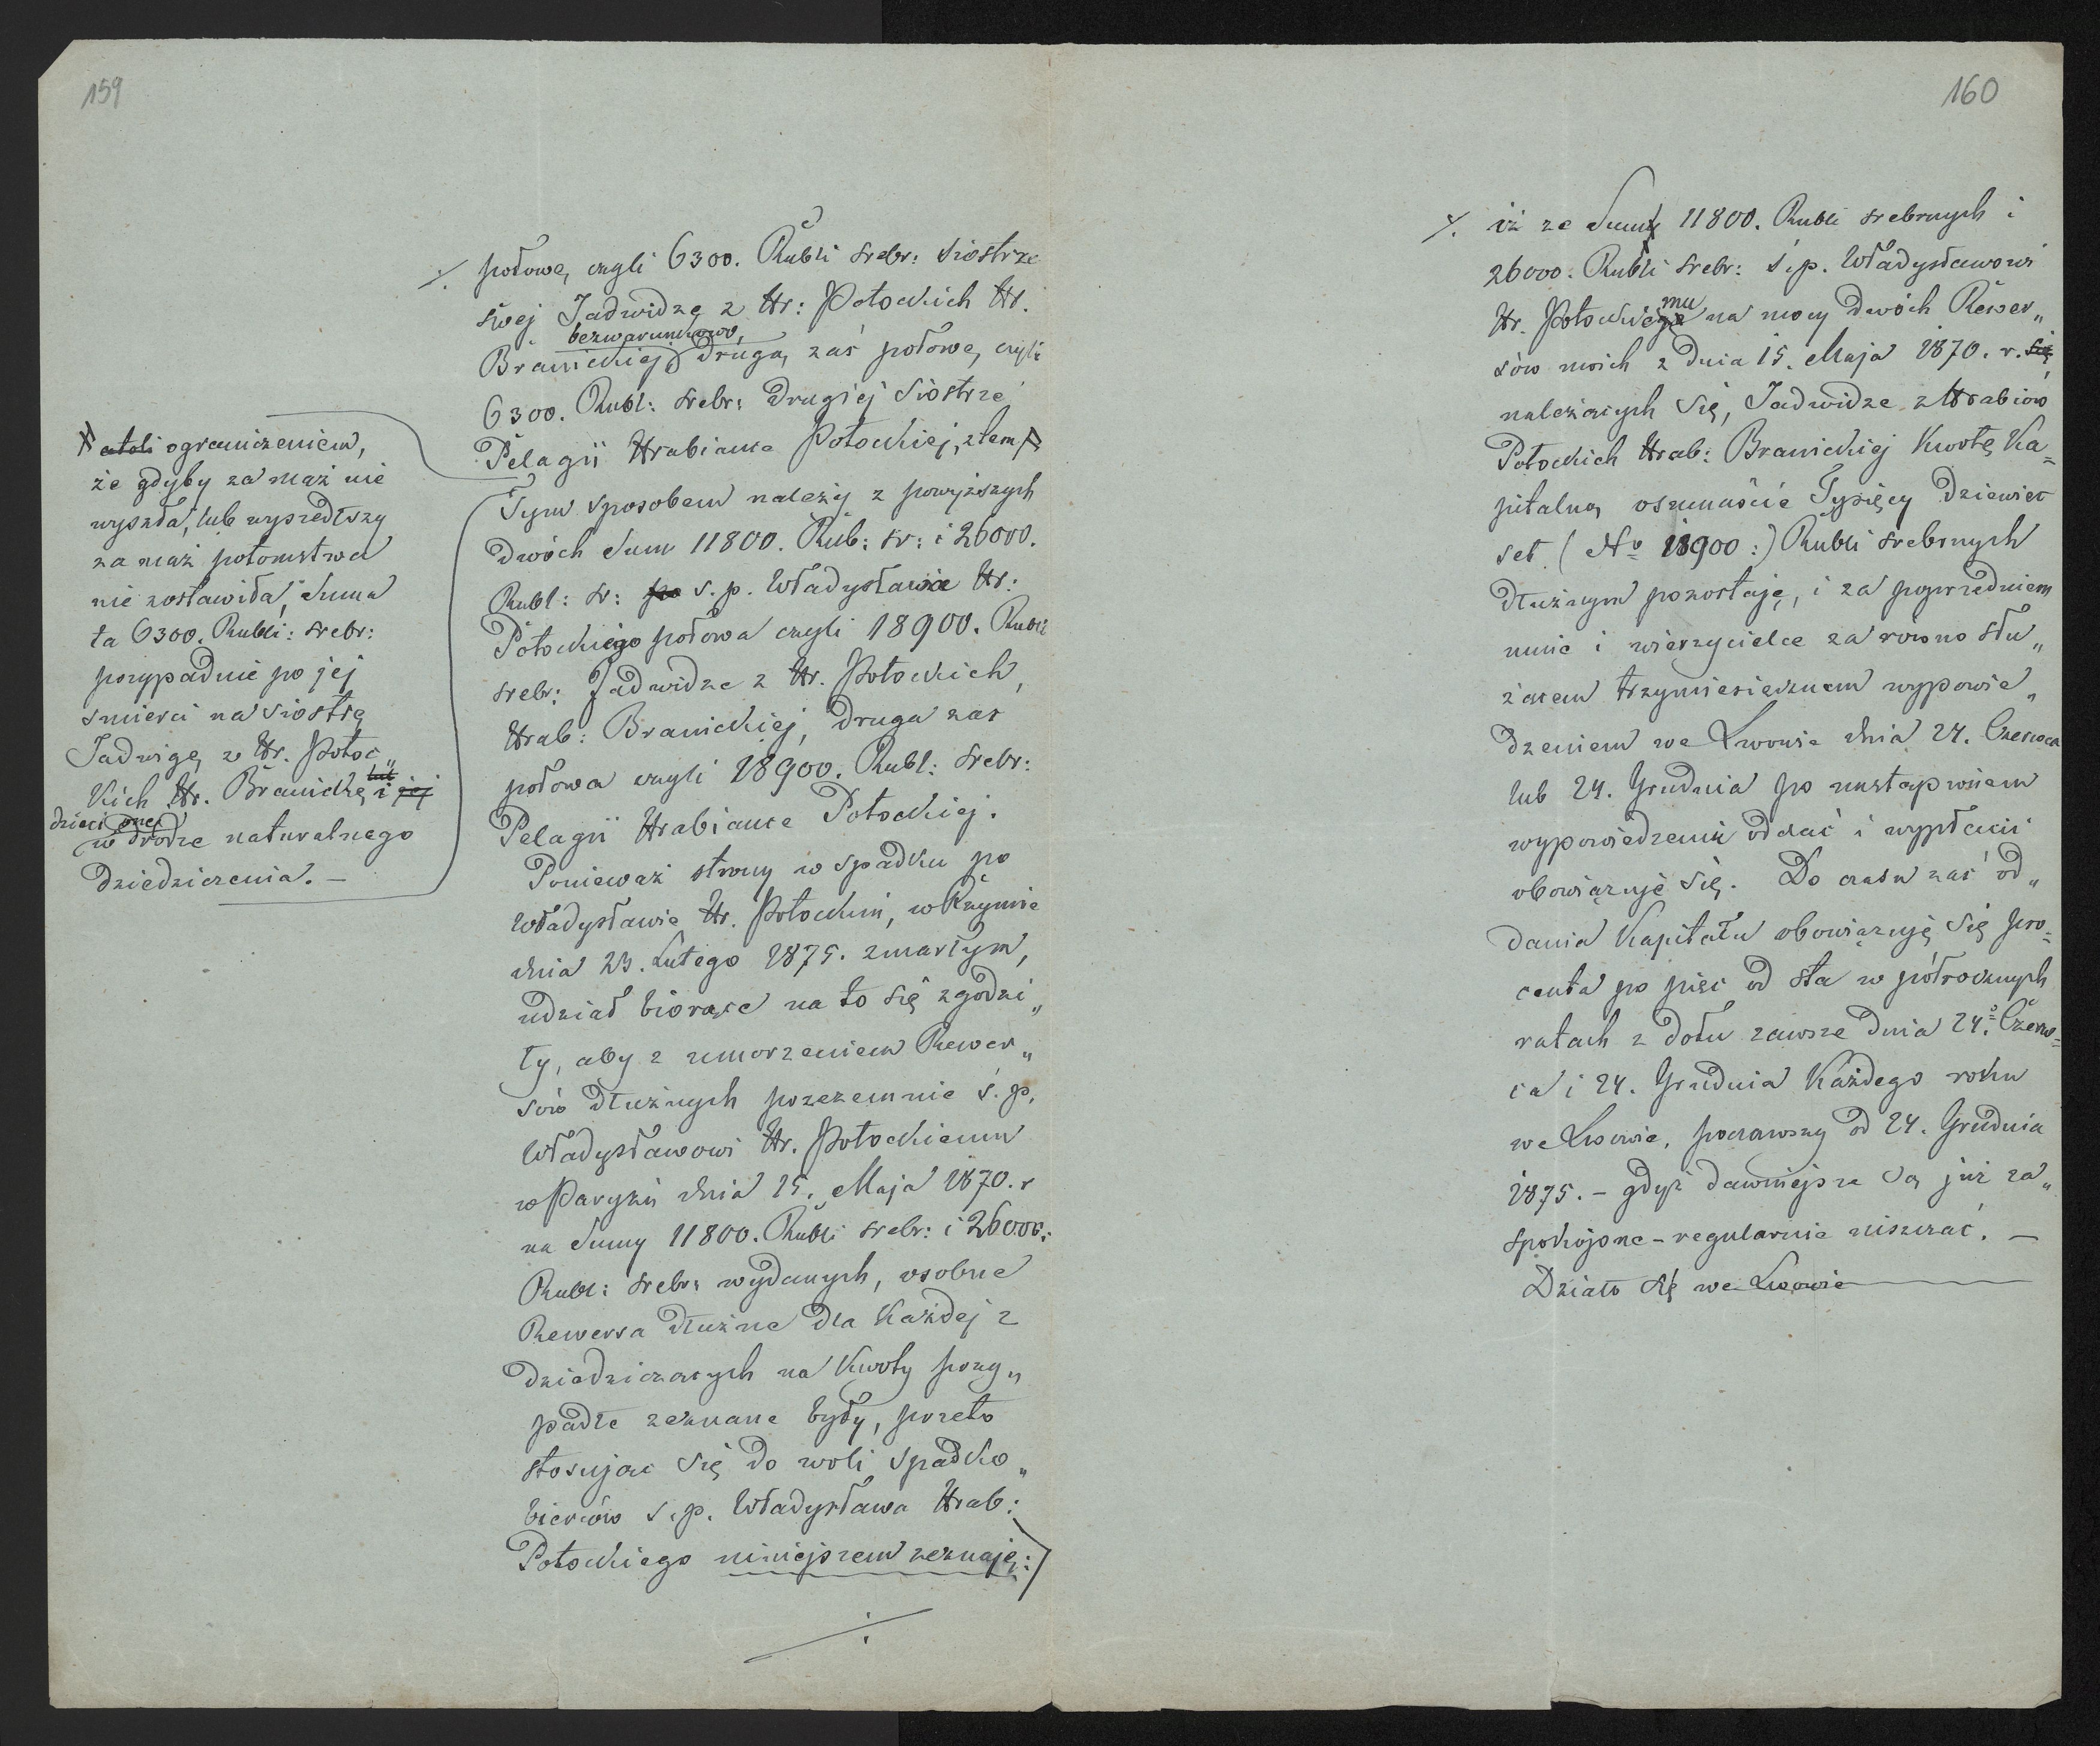 159
./. połowę, czyli 6300. Rubli srebr: siostrze
swej Jadwidze z Hr: Potockich Hr.
bezwarunkowo,
Branickiej, drugą zaś połowę, czyli
6300. Rubl: srebr: drugiej siostrze
Pelagii Hrabiance Potockiej, z tem #
# atoli ograniczeniem,
że gdyby za mąż nie
wyszła, lub wyszedłszy
za mąż potomstwa
nie zostawiła, suma
ta 6300. Rubli: srebr:
przypadnie po jej
śmierci na siostrę
Jadwigę z Hr. Potoc„
kich Hr. Branicką lub i jej
dzieci onej
w drodze naturalnego
dziedziczenia. —
Tym sposobem należy z powyższych
dwóch sum 11800. Rub: sr: i 26000.
Rubl: sr: po ś. p. Władysławie Hr:
Potockiego połowa czyli 18900. Rubli
srebr: Jadwidze z Hr. Potockich,
Hrab: Branickiej, druga zaś
połowa czyli 18900. Rubl: srebr:
Pelagii Hrabiance Potockiej.
Ponieważ strony w spadku po
Władysławie Hr. Potockim, w Rzymie
dnia 23. Lutego 1875. zmarłym,
udział biorące na to się zgodzi„
ły, aby z umorzeniem Rewer„
sów dłużnych przezemnie ś. p.
Władysławowi Hr. Potockiemu
w Paryżu dnia 15. Maja 1870. r
na Sumy 11800. Rubli srebr: i 26000.
Rubl: srebr: wydanych, osobne
Rewersa dłużne dla każdej z
dziedziczących na kwoty przy„
padłe zeznane były, przeto
stosując się do woli spadko„
bierców ś. p. Władysława Hrab:
Potockiego niniejszem zeznaję:
./.
160
./. iż ze Sumy 11800. Rubli srebrnych i
26000. Rubli srebr: ś. p. Władysławowi
mu
Hr. Potockiego na mocy dwóch Rewer„
sów moich z dnia 15. Maja 1870. r. się
należących się, Jadwidze z Hrabiów
Potockich Hrab: Branickiej kwotę ka=
pitalną osmnaście Tysięcy dziewięć
set. (No 18900:) Rubli srebrnych
dłużnym pozostaję, i za poprzedniem
mnie i wierzycielce zarówno słu„
żącem trzymiesięcznem wypowie„
dzeniem we Lwowie dnia 24. Czerwca
lub 24. Grudnia po nastąpionem
wypowiedzeniu oddać i wypłacić
obowiązuję się. Do czasu zaś od„
dania kapitału obowiązuję się pro=
centa po pięć od sta w półrocznych
ratach z dołu zawsze dnia 24. Czerw=
ca i 24. Grudnia każdego roku
we Lwowie, począwszy od 24. Grudnia
1875. – gdyż dawniejsze są już za„
spokojone – regularnie uiszczać. —
Działo się we Lwowie